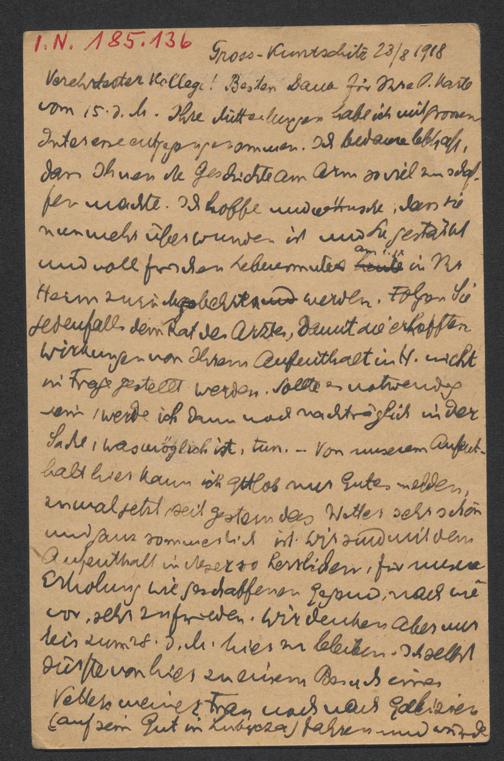 I.N. 185.136
Gross-Kuntschitz 23/8 1918
Verehrtester Kollege! Besten Dank für Ihre P. Karte
vom 15. d. M. Ihre Mitteilungen habe ich mit grossem
Interesse entgegengenommen. Ich bedaure lebhaft,
dass Ihnen die Geschichte am Arm so viel zu schaf-
fen machte. Ich hoffe und wünsche, dass sie
nunmehr überwunden ist und Sie gestärkt
und voll frischen Lebensmutes in Ihr
Heim zurück werden. Folgen Sie
jedenfalls dem Rat des Arztes, damit die erhofften
Wirkungen von Ihrem Aufenthalt in H. nicht
in Frage gestellt werden. Sollte es notwendig
sein, werde ich dann noch nachträglich in der
Sache, was möglich ist, tun. – Von unserem Aufent-
halt hier kann ich gottlob nur Gutes melden,
zumal jetzt seit gestern das Wetter sehr schön
und ganz sommerlich ist. Wir sind mit dem
Aufenthalt in dieser so herrlichen, für unsere
Erholung wie geschaffenen Gegend, nach wie
vor, sehr zufrieden. Wir denken aber nur
bis zum 28. d. M. hier zu bleiben. Ich selbst
dürfte von hier zu einem Besuch eines
Vetters meiner Frau noch nach Galizien
(auf sein Gut in Lubycza) fahren und würde